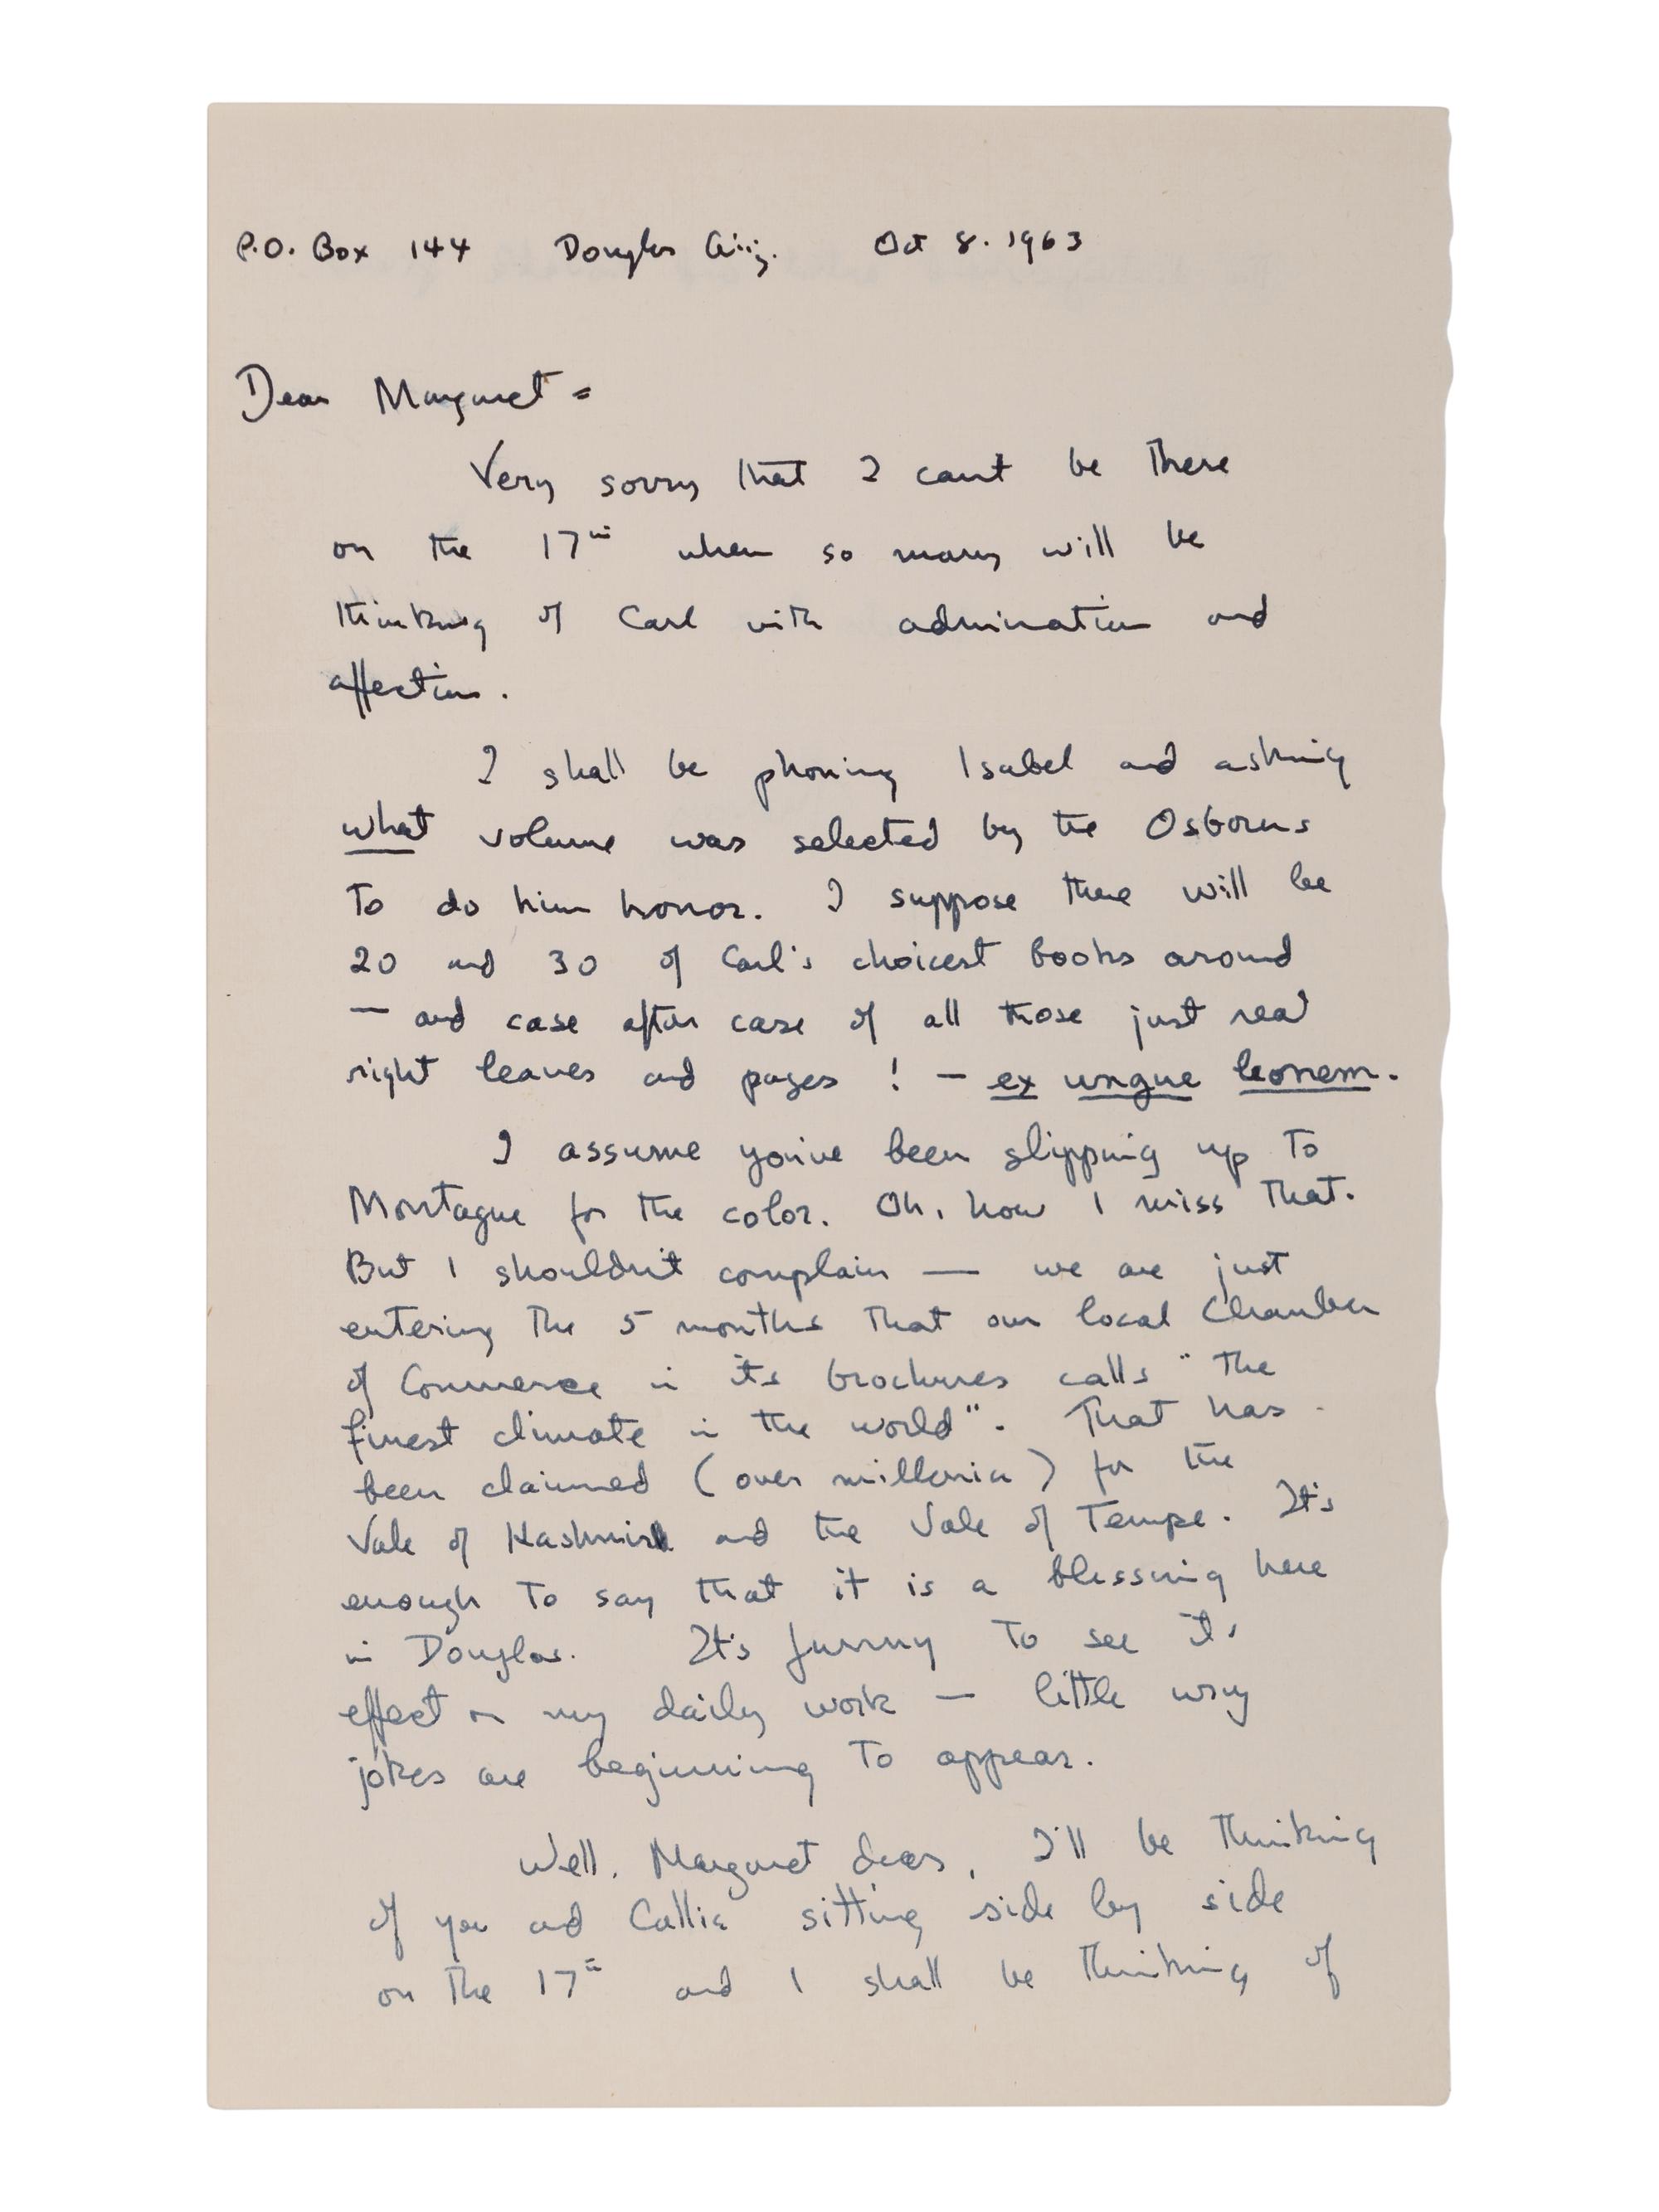 P.O. Box 144 Douglas Ariz. Oct 8. 1963
Dear Margaret =
Very sorry that I can't be there
on the 17th when so many will be
thinking of Carl with admiration and
affection.
I shall be phoning Isabel and asking
what volume was selected by the Osborns
to do him honor. I suppose there will be
20 and 30 of Carl's choicest books around
— and case after case of all those just read
right leaves and pages ! — ex ungue leonem.
I assume you've been slipping up to
Montague for the color. Oh, how I miss that.
But I shouldn't complain — we are just
entering the 5 months that our local Chamber
of Commerce in its brochures calls "the
finest climate in the world". That has
been claimed (over millenia) for the
Vale of Kashmir and the Vale of Tempe. It's
enough to say that it is a blessing here
in Douglas. It's funny to see its
effect on my daily work — little wry
jokes are beginning to appear.
Well, Margaret dear, I'll be thinking
of you and Callie sitting side by side
on the 17th and I shall be thinking of